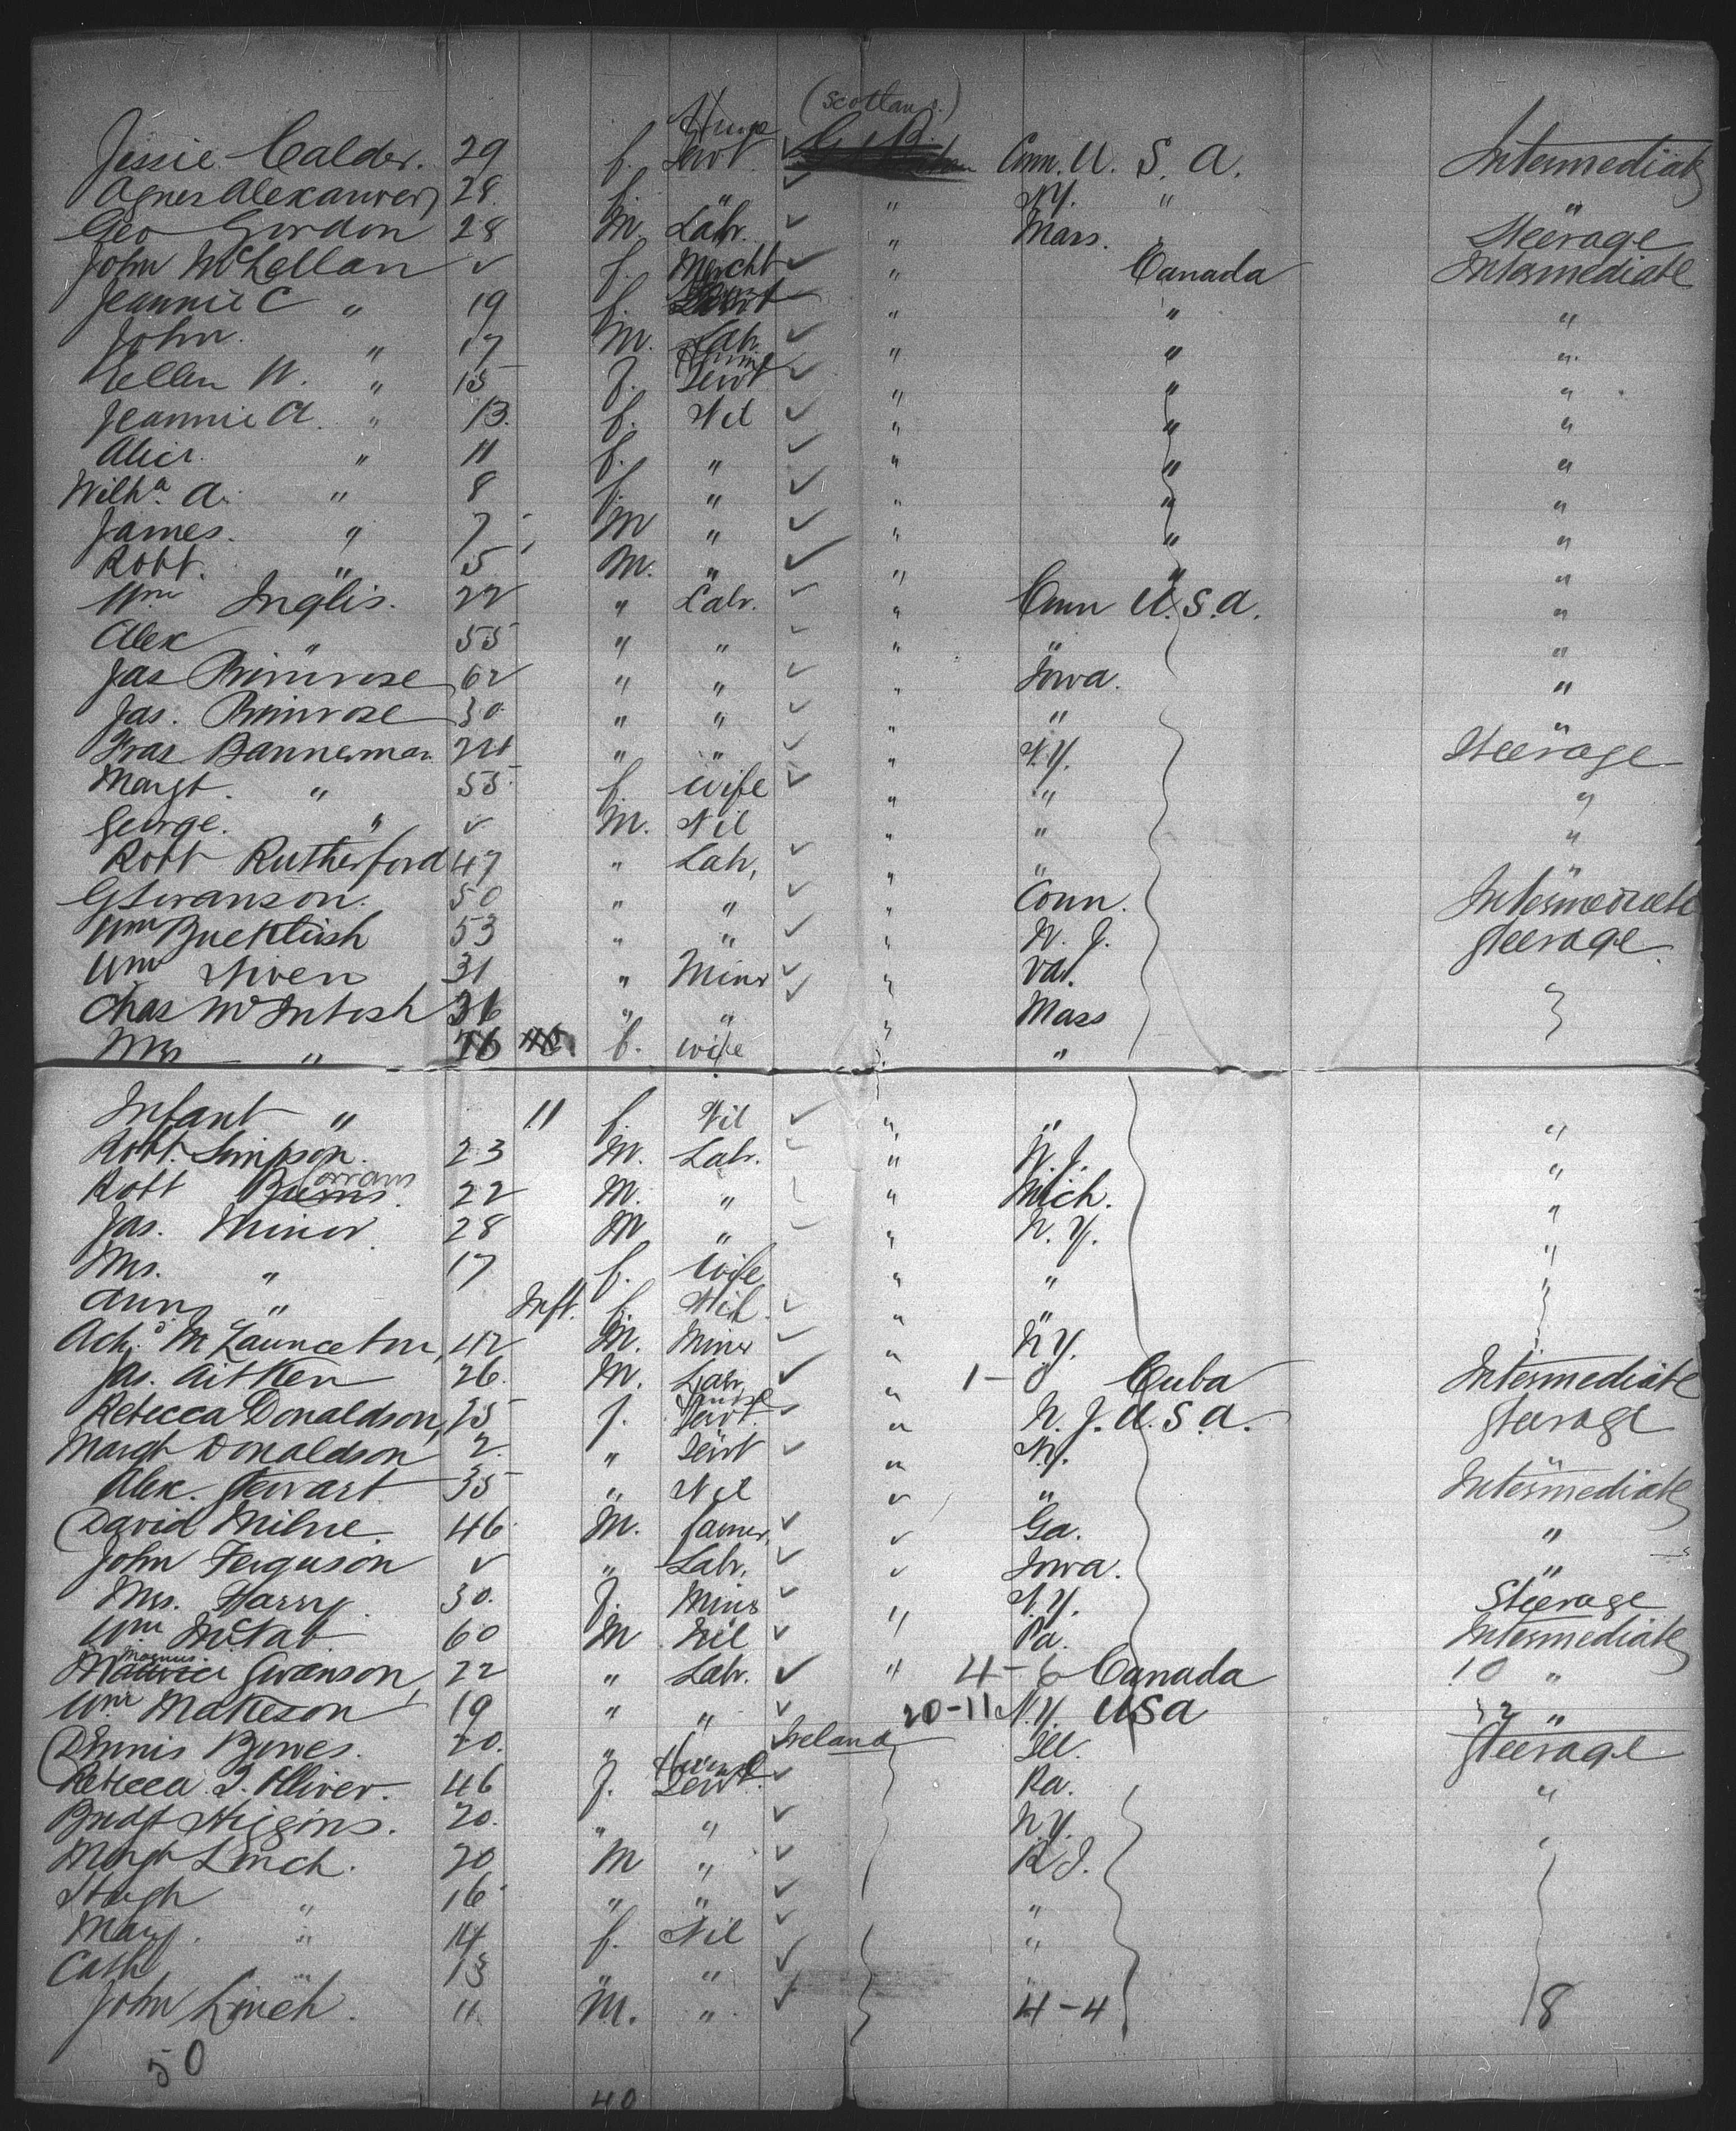 (Scotland.)
Jessie Calder. 29 f. House Servt Conn. U. S. A. Intermediate
Agnes Alexander 28. f. " " N.Y. " "
Geo Gordon 28 M. Labr. " Mass. Steerage
John McLellan f. Mercht " Canada Intermediate
Jeannie C " 19 f. " " "
John. " 17 M. Labr. " " "
Ellen W. " 15 f. House Servt " " "
Jeannie A. " 13. f. Nil " " "
Alice. " 11 f. " " " "
Wilha A. " 8 f. " " " "
James. " 7 M " " " "
Robt. " 5 M. " " " "
Wm Inglis. 22 " Labr. " Conn U.S.A. "
Alex " 55 " " " " "
Jas Primrose 62 " " " Iowa. "
Jas. Primrose 30 " " " " "
Fras Bannerman " " " N.Y. Steerage
Margt. " 55 f. Wife " " "
George. " M. Nil " " "
Robt Rutherford 47 " Labr, " " "
G Swanson. 50 " " " Conn. Intermediate
Wm 53 " " " N. J. Steerage
Wm Niven 31 " Miner " Va.
Chas McIntosh 36 " " " Mass
Mrs " f. wife " "
Infant " 11 f. Nil " " "
Robt. Simpson. 23 M. Labr. " N.J. "
Robt 22 M. " " Mich. "
Jas. Minor 28 M " " N. Y. "
Mrs. " 17 f. Wife " " "
Ann " Inft. f. Nil " " "
42 M. Miner " N.Y.
Jas. Aitken 26. M. Labr " 1- Cuba Intermediate
Rebecca Donaldson, 25 f. House Servt. " N. J. U.S.A. Steerage
Margt Donaldson 2 " Servt " N.Y. "
Alex. Stewart 35 " Nil " Intermediate
David Milne 46 M. farmer, Ga. "
John Ferguson " Labr. Iowa. "
Mrs. Harry 30. f. Miner " N.Y. Steerage
Wm McNab 60 M Nil Pa. Intermediate
Magnus Swanson, 22 " Labr. " 4-6 Canada 10 "
Wm Matheson 19 " " 20-11 N.Y. USA 32 "
Dennis 20. " Ireland Ill. Steerage
Rebecca J. Olliver. 46 f. House Servt. Pa. "
Bridgt Higgins. 20. " " N.Y. "
Margt Linch. 20 M " R I.
Hugh " 16 " " "
Mary. " 14 f. Nil "
Cath " 13 " " "
John Linch. 11 M. " 4-4 18
50
40